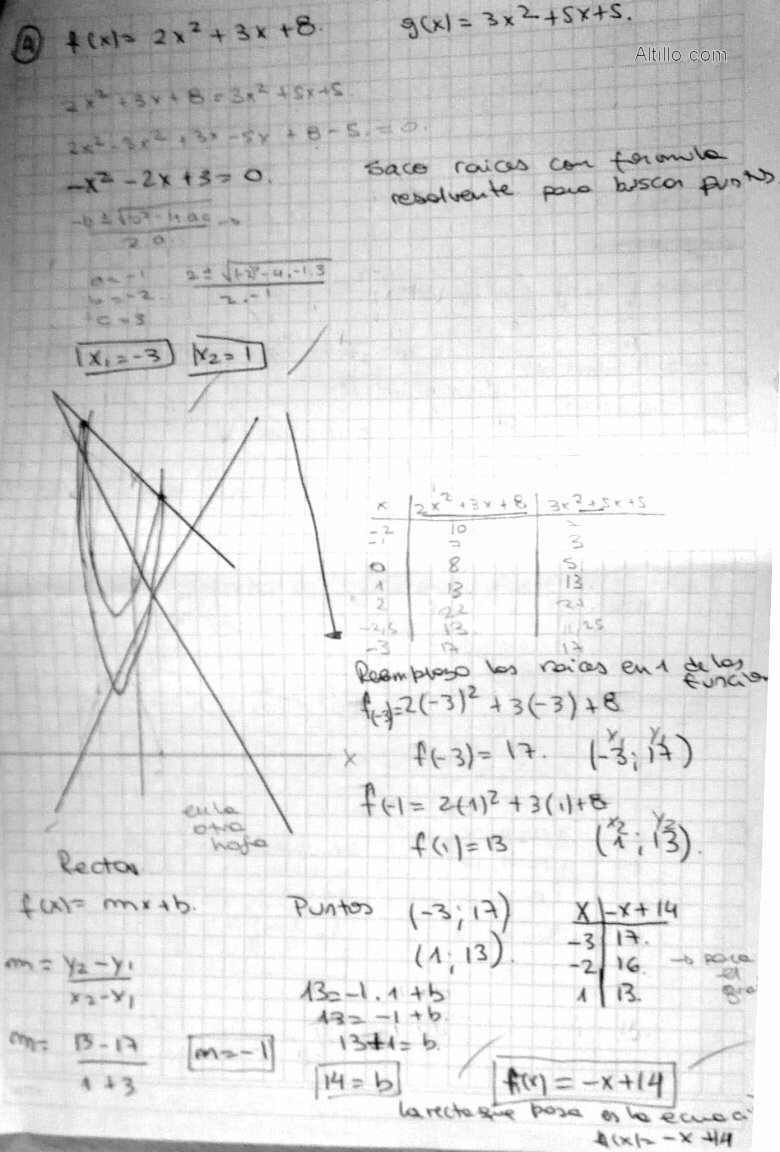 4) f(x) = 2x² + 3x + 8. g(x) = 3x² + 5x + 5.
Altillo.com
2x² + 3x + 8 = 3x² + 5x + 5.
2x² - 3x² + 3x - 5x + 8 - 5 = 0.
-x² - 2x + 3 = 0.
Saco raices con formula
resolvente para buscar puntos
-b ± √b² - 4.a.c
2.a
a = -1
b = -2
c = 3
2 ± √(-2)² - 4.-1.3
2.-1
x₁ = -3 x₂ = 1
x | 2x² + 3x + 8 | 3x² + 5x + 5
-2 | 10
-1 | 7 | 3
0 | 8 | 5
1 | 13 | 13
2 | 22
-2,5 | 13
-3 | 17 | 17
Reemplazo las raices en 1 de las
f(-3) = 2(-3)² + 3(-3) + 8
f(-3) = 17. (-3 ; 17)
x₁ y₁
f(-1 = 2(1)² + 3(1) + 8
f(1) = 13 (1 ; 13).
x₂ y₂
x
en la
otra
hoja
Recta
f(x) = mx + b.
m = y₂ - y₁
x₂ - x₁
m = 13 - 17
1 + 3
m = -1
Puntos (-3 ; 17)
(1 ; 13).
13 = -1 . 1 + b
13 = -1 + b.
13 + 1 = b.
14 = b
x | -x + 14
-3 | 17.
-2 | 16
1 | 13.
para
el
f(x) = -x + 14
la recta que pasa es la
f(x) = -x + 14